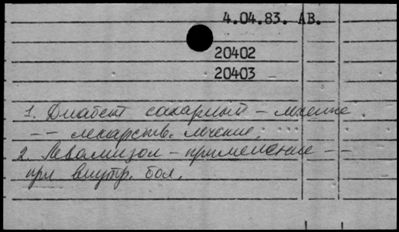 4.04.83. АВ.
20402
20403
1. Диабет сахарный – лечение.
-- лекарств. лечение.
2. Левамизол – применение --
при внутр. бол.